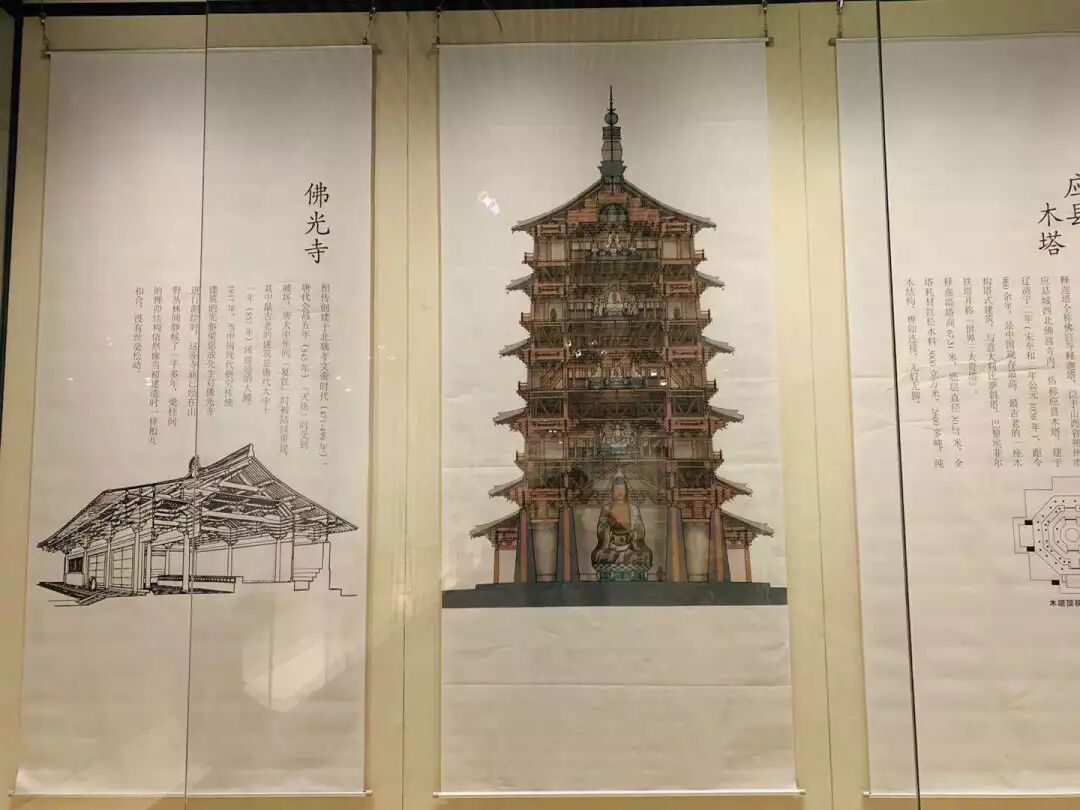 佛光寺
相传创建于北魏孝文帝时代（471-499 年）。
唐代会昌五年（845 年）“灭法”时受到
破坏，唐大中年间“复法”时候陆续重建，
其中最古老的建筑是唐代大中十
一年（857年）所建造的大殿。
1937 年，当中国现代研究传统
建筑的先驱梁思成先生对佛光寺
进行测绘时，这座寺庙已经在山
野丛林间静候了一千多年，梁柱间
的榫卯结构依然像当初建造时一样相互
扣合，没有丝毫松动。
应县
木塔
释迦塔全称佛宫寺释迦塔，位于山西省朔州市
应县城西北佛宫寺内，俗称应县木塔。建于
辽清宁二年（宋至和三年公元1056年），距今
960 余年，是中国现存最高、最古老的一座木
构塔式建筑，与意大利比萨斜塔、巴黎埃菲尔
铁塔并称“世界三大奇塔”。
释迦塔塔高 67.31 米，底层直径 30.27 米，全
塔耗材红松木料 3000 立方米，2600 多吨，纯
木结构、榫卯连接，无钉无铆。
木塔顶